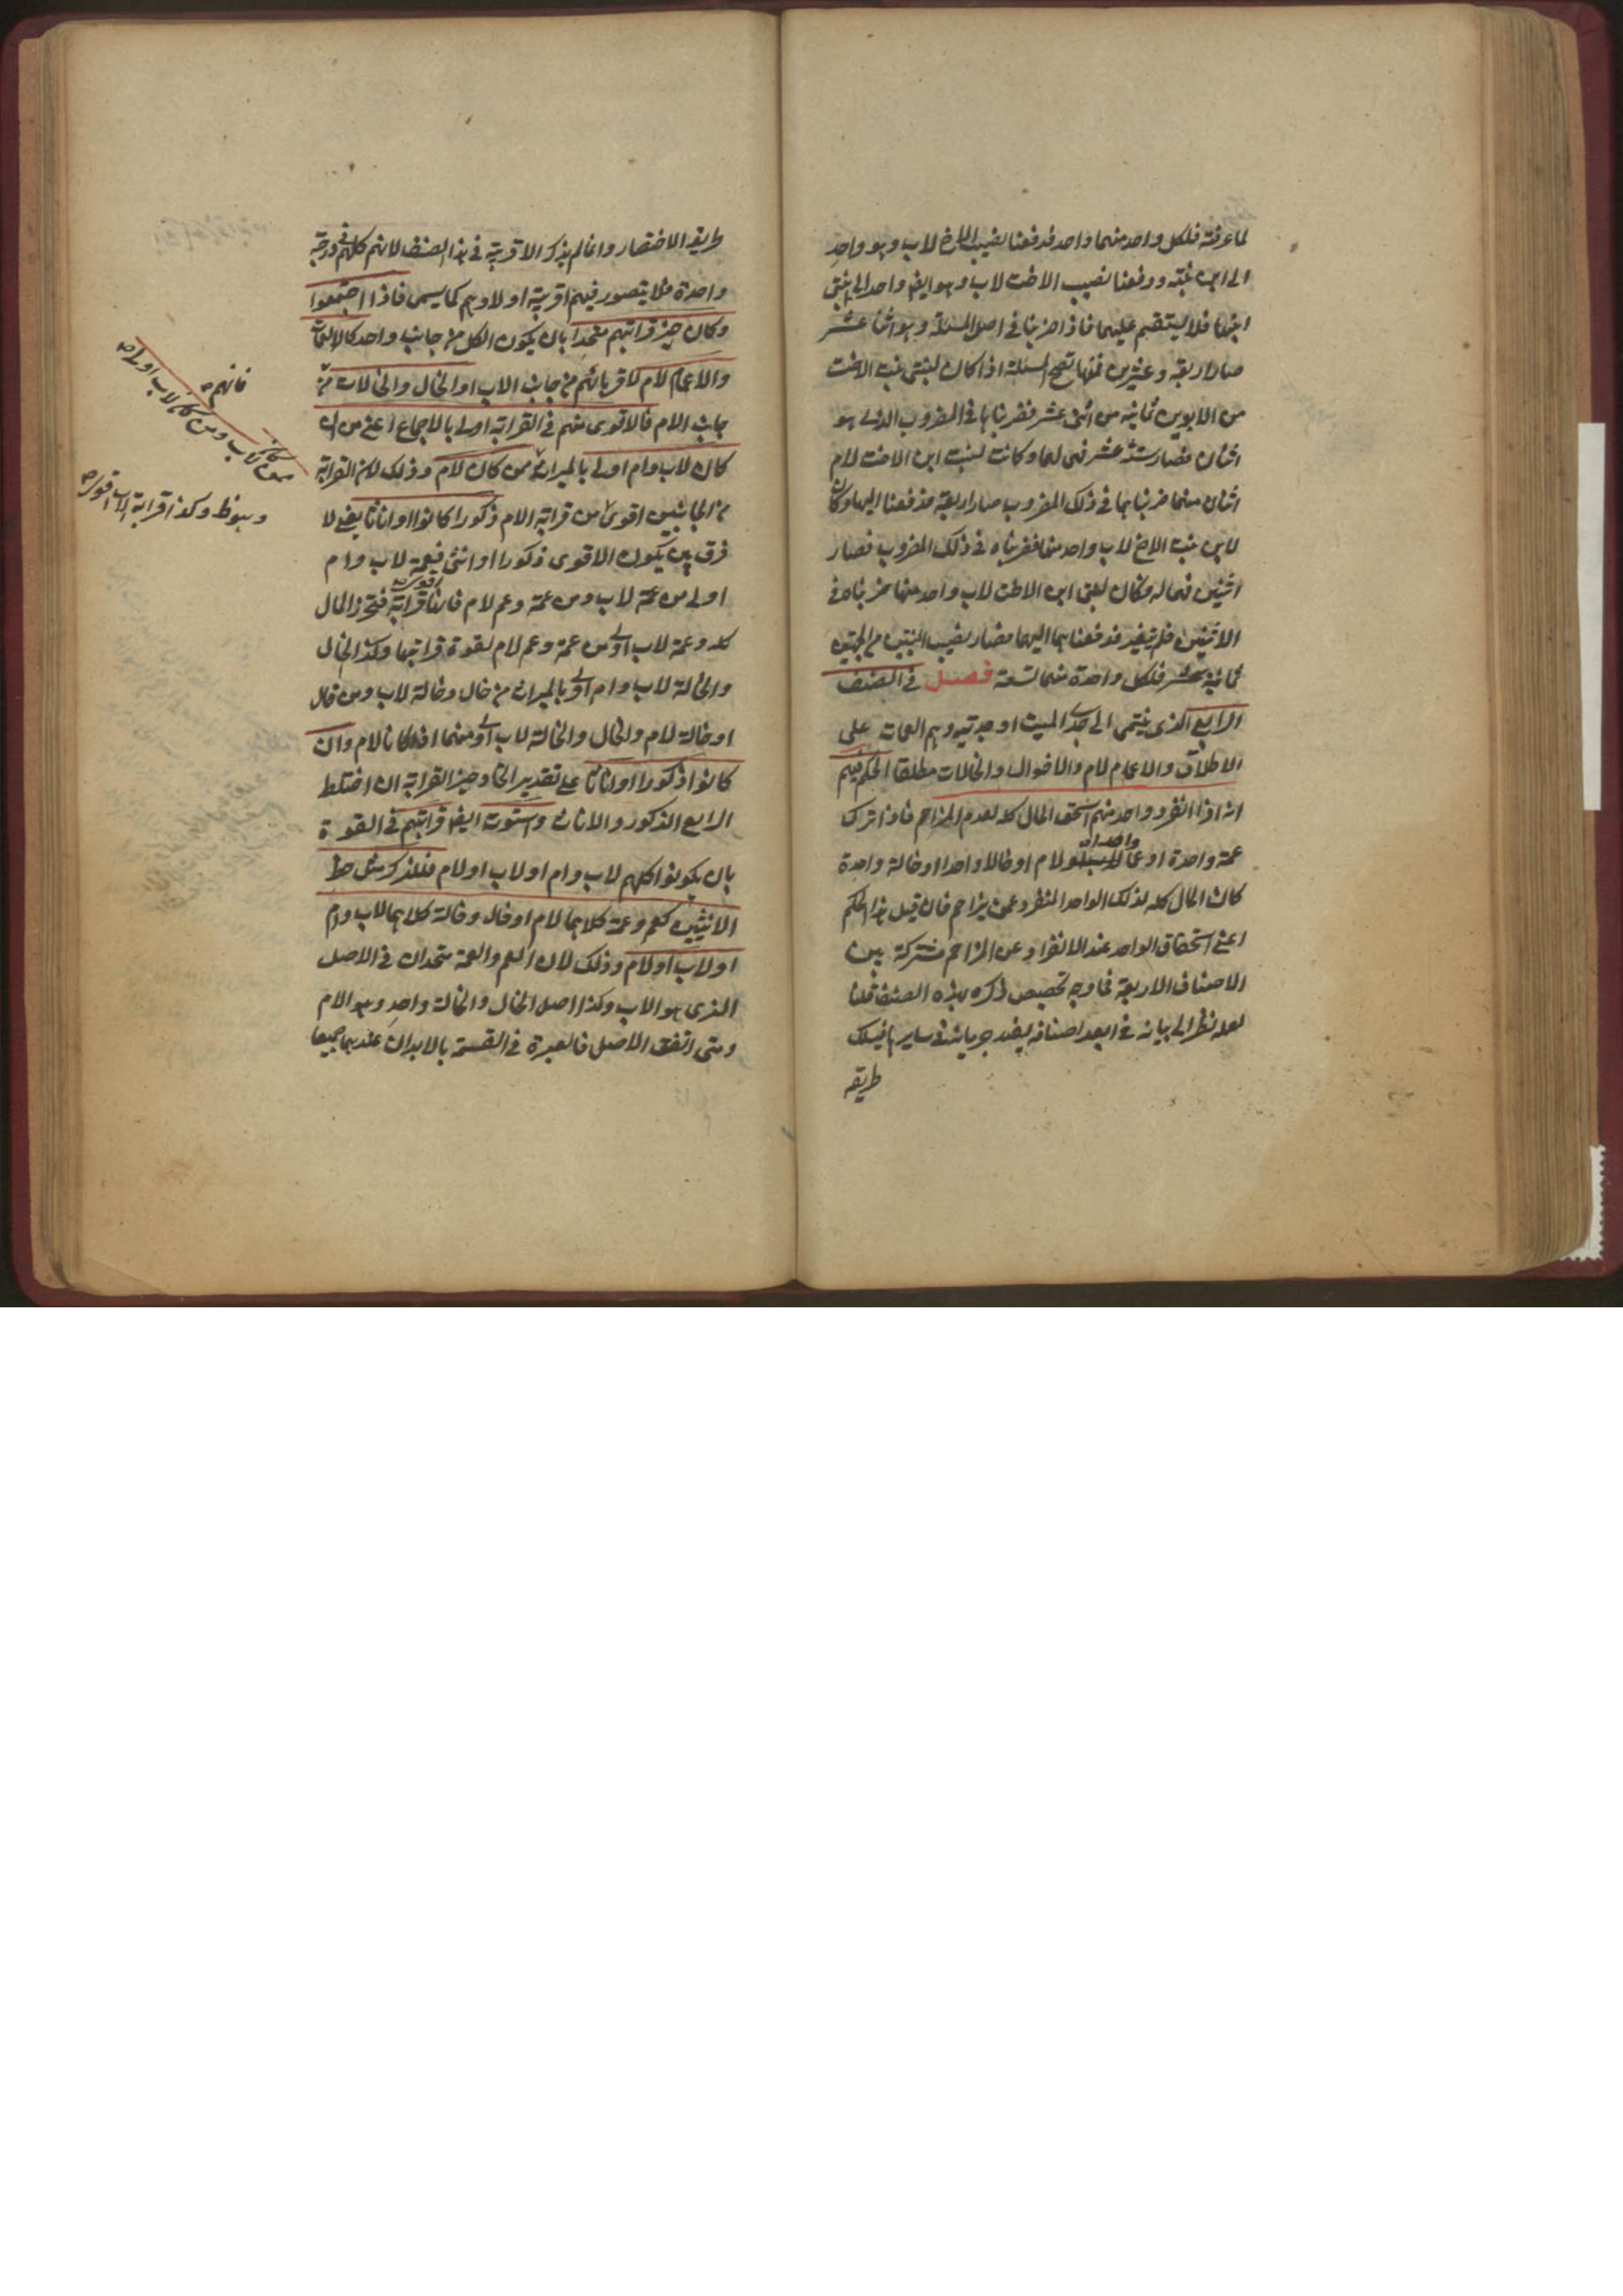 لما عرفته فلكل واحد منهما واحد فدفعنا نصيب الاخ لاب وهو واحد
الى ابن بنته ودفعنا نصيب الاخت لاب وهو ايضا واحد الى بنتى
ابنها فلا يستقيم عليهما فاذا ضربنا فى اصل المسئلة وهو اثنا عشر
صار اربعة وعشرين فمنها تصح المسئلة اذا كان لبنتى بنت الاخت
من الابوين ثمانية من اثنى عشر فضربناها فى المضروب الذى هو
اثنان فصار ستة عشر فهى لهما وكانت لبنت ابن الاخت لام
اثنان منهما ضربناهما فى ذلك المضروب صار اربعة فدفعنا اليها وكان
لابن بنت الاخ لاب واحد منها فضربناه فى ذلك المضروب فصار
اثنين فهى له وكان لبنتى ابن الاخت لاب واحد منها ضربناه فى
الاثنين فلم يتغير فدفعناهما اليهما فصار نصيب البنتين من الجهتين
ثمانية عشر فلكل واحدة منهما تسعة فصل فى الصنف
الرابع الذى ينتمى الى جدى الميت او جدتيه وهم العمات على
الاطلاق والاعمام لام والاخوال والخالات مطلقا الحكم فيهم
انه اذا انفرد واحد منهم استحق المال كله لعدم المزاحم فاذا ترك
عمة واحدة او عما واحدا لام او خالا واحدا او خالة واحدة
كان المال كله لذلك الواحد المنفرد عمن يزاحم فان قيل هذا الحكم
اعنى استحقاق الواحد عند الانفراد عن المزاحم مشتركة بين
الاصناف الاربعة فما وجه تخصيص ذكره بهذه الصنف قلنا
لعله نظر الى بيانه فى ابعد اصنافه يفيد جريانه فى سايرها فيسلك
طريقه
طريقه الاختصار وانما لم يذكر الاقربية فى هذا الصنف لانهم كلهم فى درجة
واحدة فلا يتصور فيهم اقربية اولادهم كما يسمى فاذا اجتمعوا
وكان حيز قرابتهم متحدا بان يكون الكل من جانب واحد كالعمات
والاعمام لام لاقربائهم من جانب الاب او الخال والخالات من
جانب الام فالاقوى منهم فى القرابة اولى بالاجماع اعنى من
كان لاب وام اولى بالميراث ممن كان لام وذلك لان القرابة
من الجانبين اقوى من قرابة الام ذكورا كانوا او اناثا يعنى لا
فرق بين يكون الاقوى ذكورا او انثى فعمة لاب وام
اولى من عمة لاب ومن عمة وعم لام فانها اقوى قرابة فتحرز المال
كله وعمة لاب اولى من عمة وعم لام لقوة قرابتها وكذا الخال
والخالة لاب وام اولى بالميراث من خال وخالة لاب ومن خال
او خالة لام والخال والخالة لاب اولى منهما اذا كانا لام وان
كانوا ذكورا واناثا على تقدير اتحاد حيز القرابة ان اختلط
الرابع الذكور والاناث واستوت ايضا قرابتهم فى القوة
بان يكونوا كلهم لاب وام او لاب او لام فللذكر مثل حظ
الانثيين كعم وعمة كلاهما لام او خال وخالة كلاهما لاب وام
او لاب او لام وذلك لان العم والعمة متحدان فى الاصل
الذى هو الاب وكذا اصل الخال والخالة واحد وهو الام
ومتى اتفق الاصل فالعبرة فى القسمة بالابدان عندهما جميعا
فانهم
ممن كان لاب ومن كان لاب اولى
وهو ظ وكذا قرابة الاب اقوى